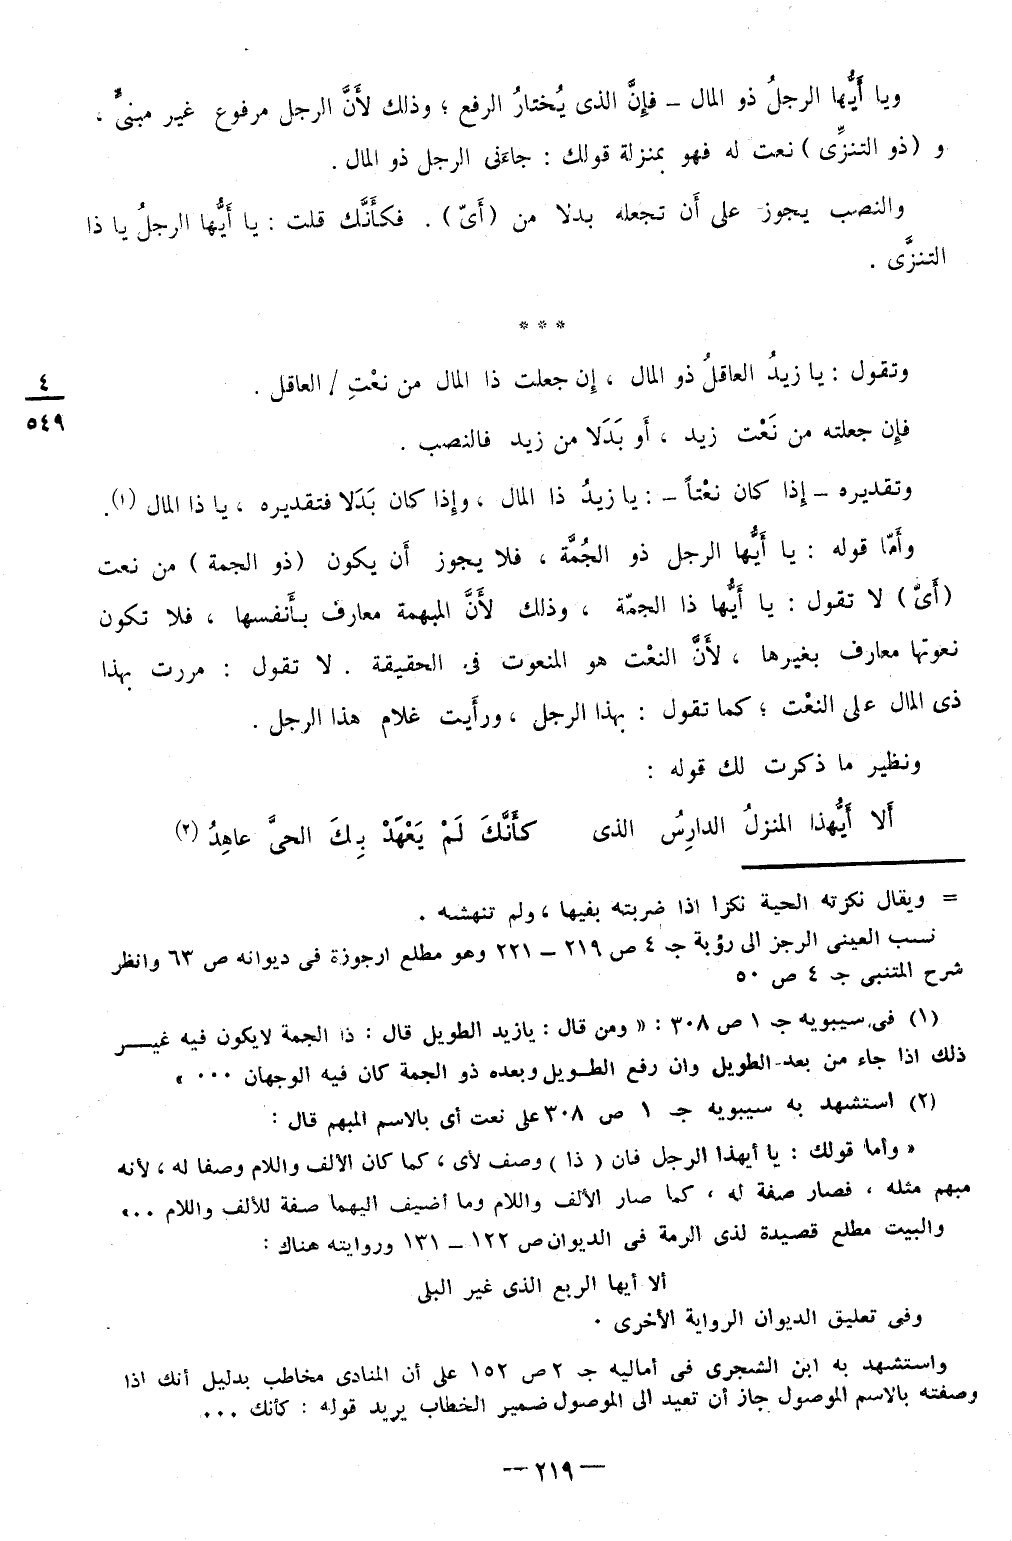 ويا أَيُّها الرجلُ ذو المال – فإِنَّ الذى يُختارُ الرفع ؛ وذلك لأَنَّ الرجل مرفوع غير مبنىٍّ ،
و (ذو التنزِّى) نعت له فهو بمنزلة قولك : جاءَنى الرجل ذو المال .
والنصب يجوز على أَن تجعله بدلا من (أَىّ) . فكأَنَّك قلت : يا أَيُّها الرجلُ يا ذا
التنزَّى .
* * *
وتقول : يا زيدُ العاقلُ ذو المال ، إِن جعلت ذا المال من نعْتِ / العاقل .
٤
٥٤٩
فإِن جعلته من نَعْت زيد ، أَو بَدَلا من زيد فالنصب .
وتقديره – إِذا كان نعْتاً – : يا زيدُ ذا المال ، وإِذا كان بَدَلا فتقديره ، يا ذا المال (١).
وأَمّا قوله : يا أَيُّها الرجل ذو الجُمَّة ، فلا يجوز أَن يكون (ذو الجمة) من نعت
(أَىُّ) لا تقول : يا أَيُّها ذا الجمّة ، وذلك لأَنَّ المبهمة معارف بأَنفسها ، فلا تكون
نعوتها معارف بغيرها ، لأَنَّ النعْت هو المنعوت فى الحقيقة . لا تقول : مررت بهذا
ذى المال على النعْت ؛ كما تقول : بهذا الرجل ، ورأَيت غلام هذا الرجل .
ونظير ما ذكرت لك قوله :
أَلا أَيُّهذا المنزلُ الدارِسُ الذى كأَنَّكَ لَمْ يَعْهَدْ بِكَ الحىَّ عاهِدُ (٢)
= ويقال نكزته الحية نكزا اذا ضربته بفيها ، ولم تنهشه .
نسب العينى الرجز الى رؤبة جـ ٤ ص ٢١٩ – ٢٢١ وهو مطلع ارجوزة فى ديوانه ص ٦٣ وانظر
شرح المتنبى جـ ٤ ص ٥٠
(١) فى سيبويه جـ ١ ص ٣٠٨ : « ومن قال : يازيد الطويل قال : ذا الجمة لايكون فيه غيـــر
ذلك اذا جاء من بعد الطويل وان رفع الطـويل وبعده ذو الجمة كان فيه الوجهان ٠٠٠ »
(٢) استشهد به سيبويه جـ ١ ص ٣٠٨ على نعت أى بالاسم المبهم قال :
« وأما قولك : يا أيهذا الرجل فان ( ذا ) وصف لأى ، كما كان الألف واللام وصفا له ، لأنه
مبهم مثله ، فصار صفة له ، كما صار الألف واللام وما أضيف اليهما صفة للألف واللام ٠٠»
والبيت مطلع قصيدة لذى الرمة فى الديوان ص ١٢٢ – ١٣١ وروايته هناك :
ألا أيها الربع الذى غير البلى
وفى تعليق الديوان الرواية الأخرى ٠
واستشهد به ابن الشجرى فى أماليه جـ ٢ ص ١٥٢ على أن المنادى مخاطب بدليل أنك اذا
وصفته بالاسم الموصول جاز أن تعيد الى الموصول ضمير الخطاب يريد قوله : كأنك ٠٠٠
— ٢١٩ —